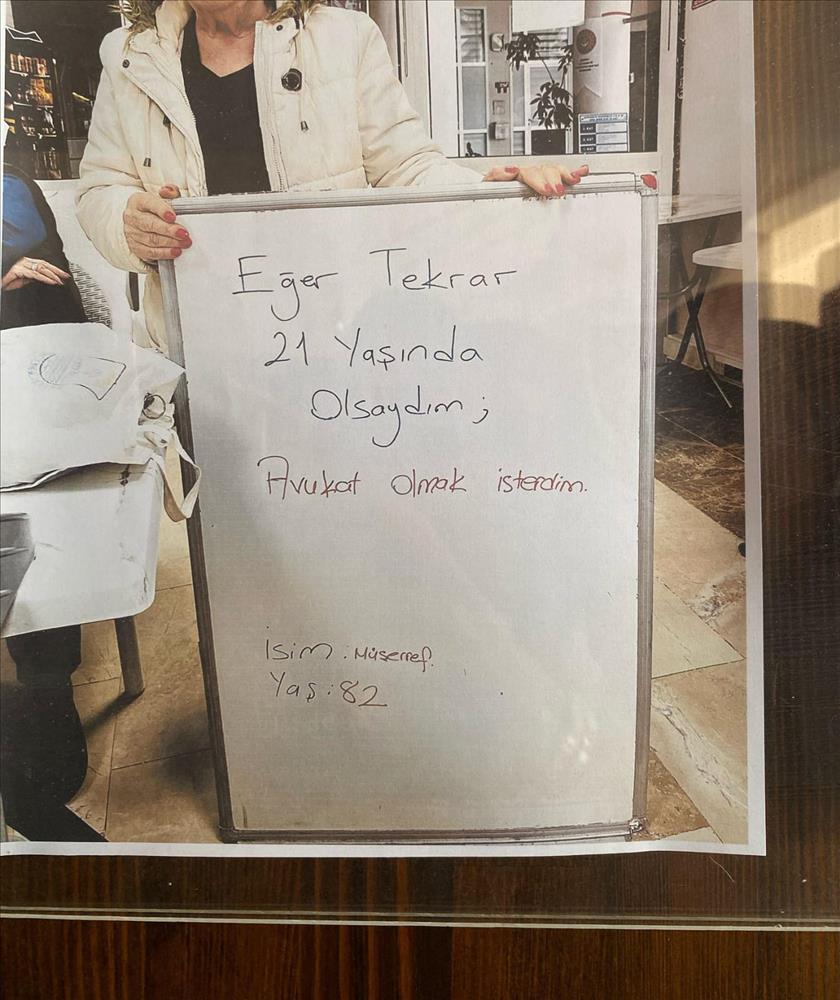 Eğer Tekrar
21 Yaşında
Olsaydım;
Avukat olmak isterdim.
İsim: Müşerref.
Yaş: 82